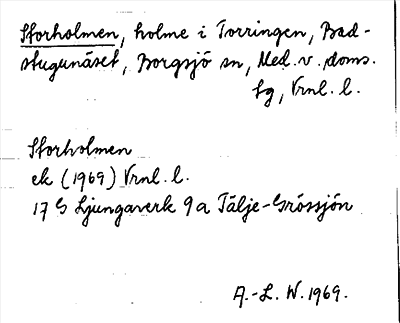 Storholmen, holme i Torringen, Bad-
stugunäset, Borgsjö sn, Med. v. doms.
tg, Vrnl. l.
Storholmen
ek (1969) Vrnl. l.
17 G Ljungaverk 9 a Tälje-Grössjön
A.-L. W. 1969.